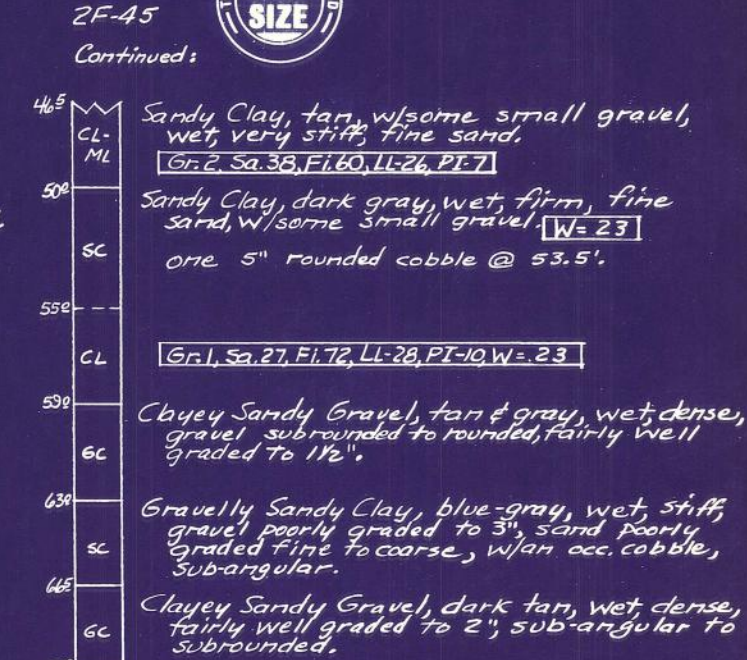 2F-45
SIZE
Continued:
46.5
CL-
ML
Sandy Clay, tan, w/some small gravel,
wet, very stiff, fine sand.
Gr.2, Sa.38, Fi.60, LL-26, PI-7
50.0
SC
Sandy Clay, dark gray, wet, firm, fine
sand, w/some small gravel. W=.23
one 5" rounded cobble @ 53.5'.
55.0
CL
Gr.1, Sa.27, Fi.72, LL-28, PI-10, W=.23
59.0
GC
Clayey Sandy Gravel, tan & gray, wet, dense,
gravel subrounded to rounded, fairly well
graded to 1 1/2".
63.0
SC
Gravelly Sandy Clay, blue-gray, wet, stiff,
gravel poorly graded to 3", sand poorly
graded fine to coarse, w/an occ. cobble,
sub-angular.
66.5
GC
Clayey Sandy Gravel, dark tan, wet, dense,
fairly well graded to 2", sub-angular to
subrounded.